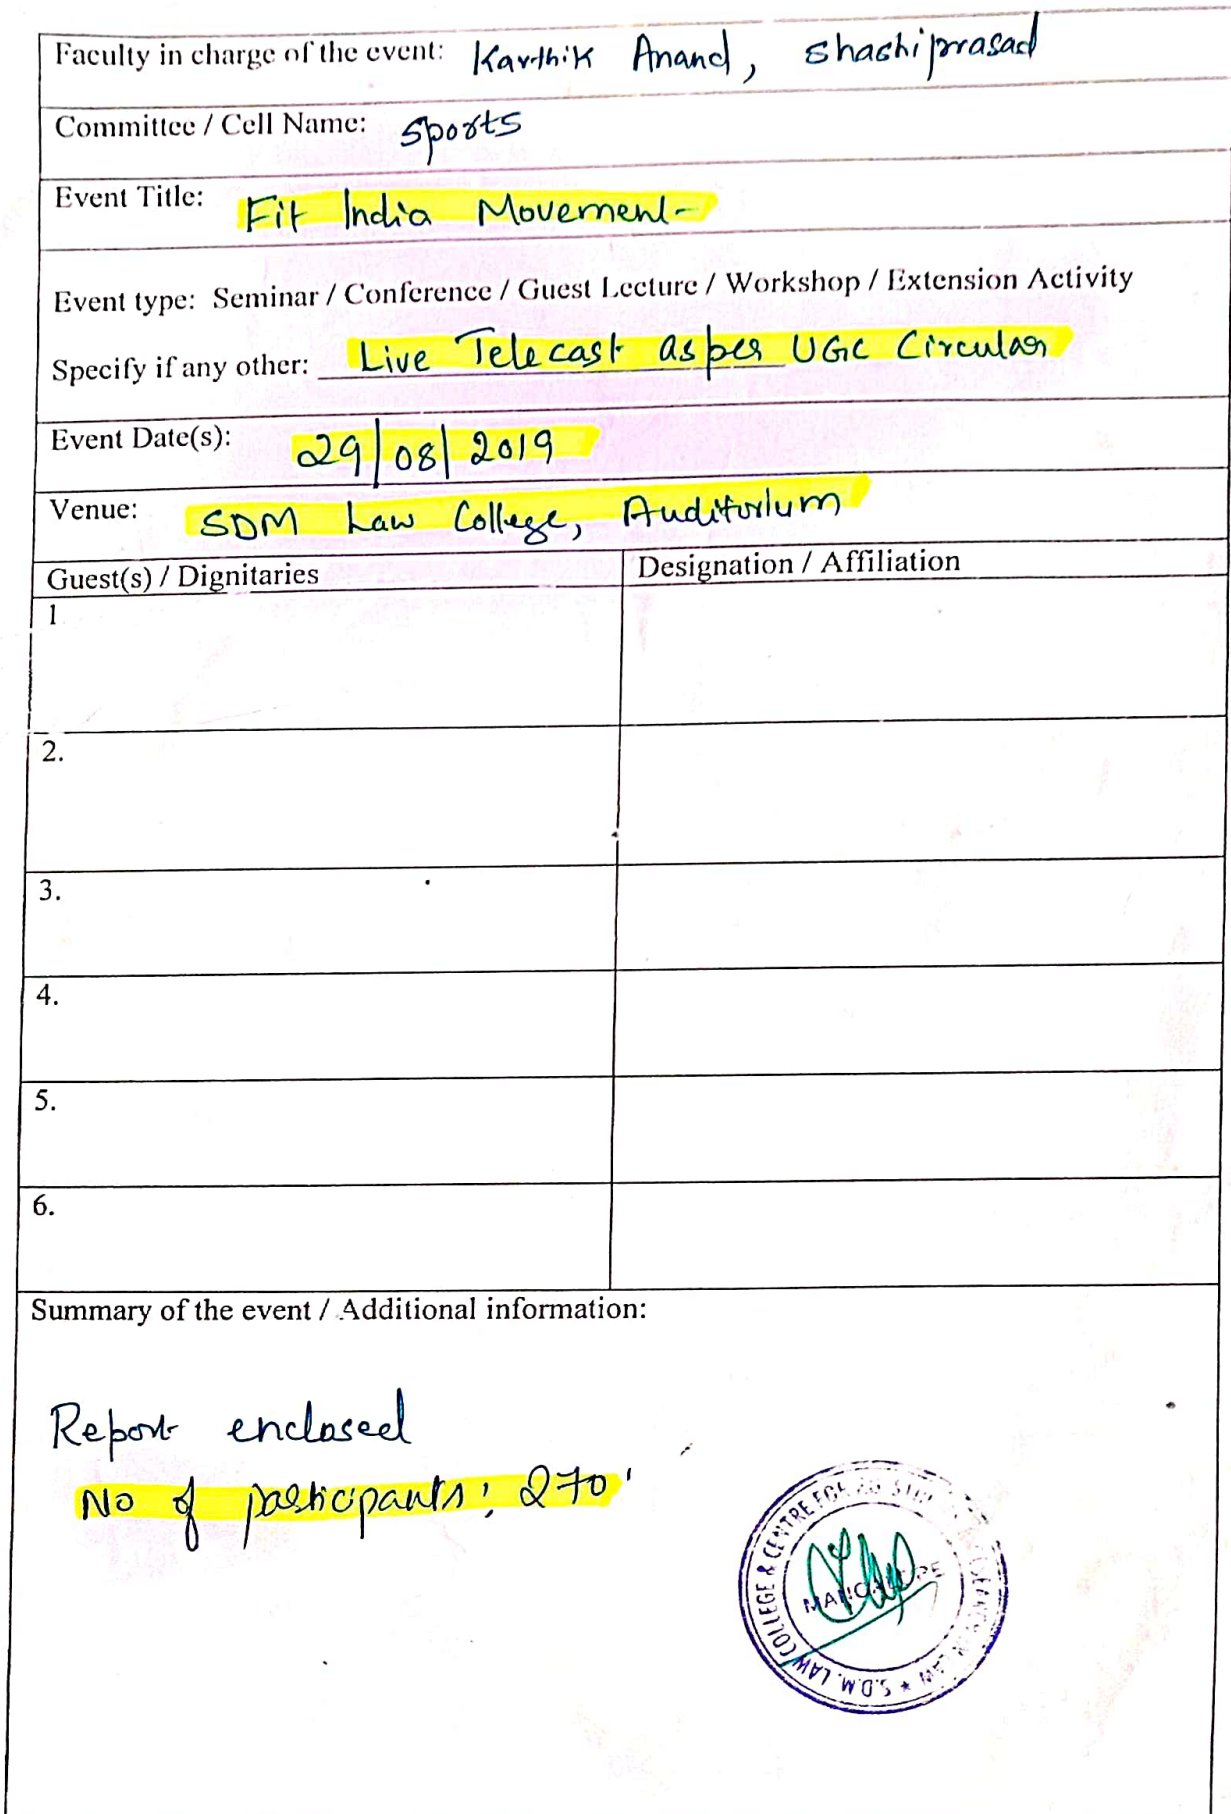 Faculty in charge of the event: Karthik Anand, Shashiprasad
Committee / Cell Name: Sports
Event Title: Fit India Movement
Event type: Seminar / Conference / Guest Lecture / Workshop / Extension Activity
Specify if any other: Live Telecast as per UGC Circular
Event Date(s): 29/08/2019
Venue: SDM Law College, Auditorium
Guest(s) / Dignitaries Designation / Affiliation
1
2.
3.
4.
5.
6.
Summary of the event / Additional information:
Report enclosed
No of participants: 270
S.D.M. LAW COLLEGE & CENTRE FOR
LAW
MANGALORE